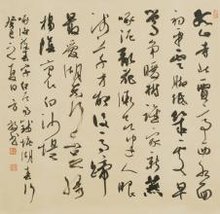 孤山寺北賈亭西水面
初平雲腳低幾處早
鶯爭暖樹誰家新燕
啄春泥亂花漸欲迷人眼
淺草才能沒馬蹄
最愛湖東行不足綠
楊陰裏白沙堤
錢塘湖春行